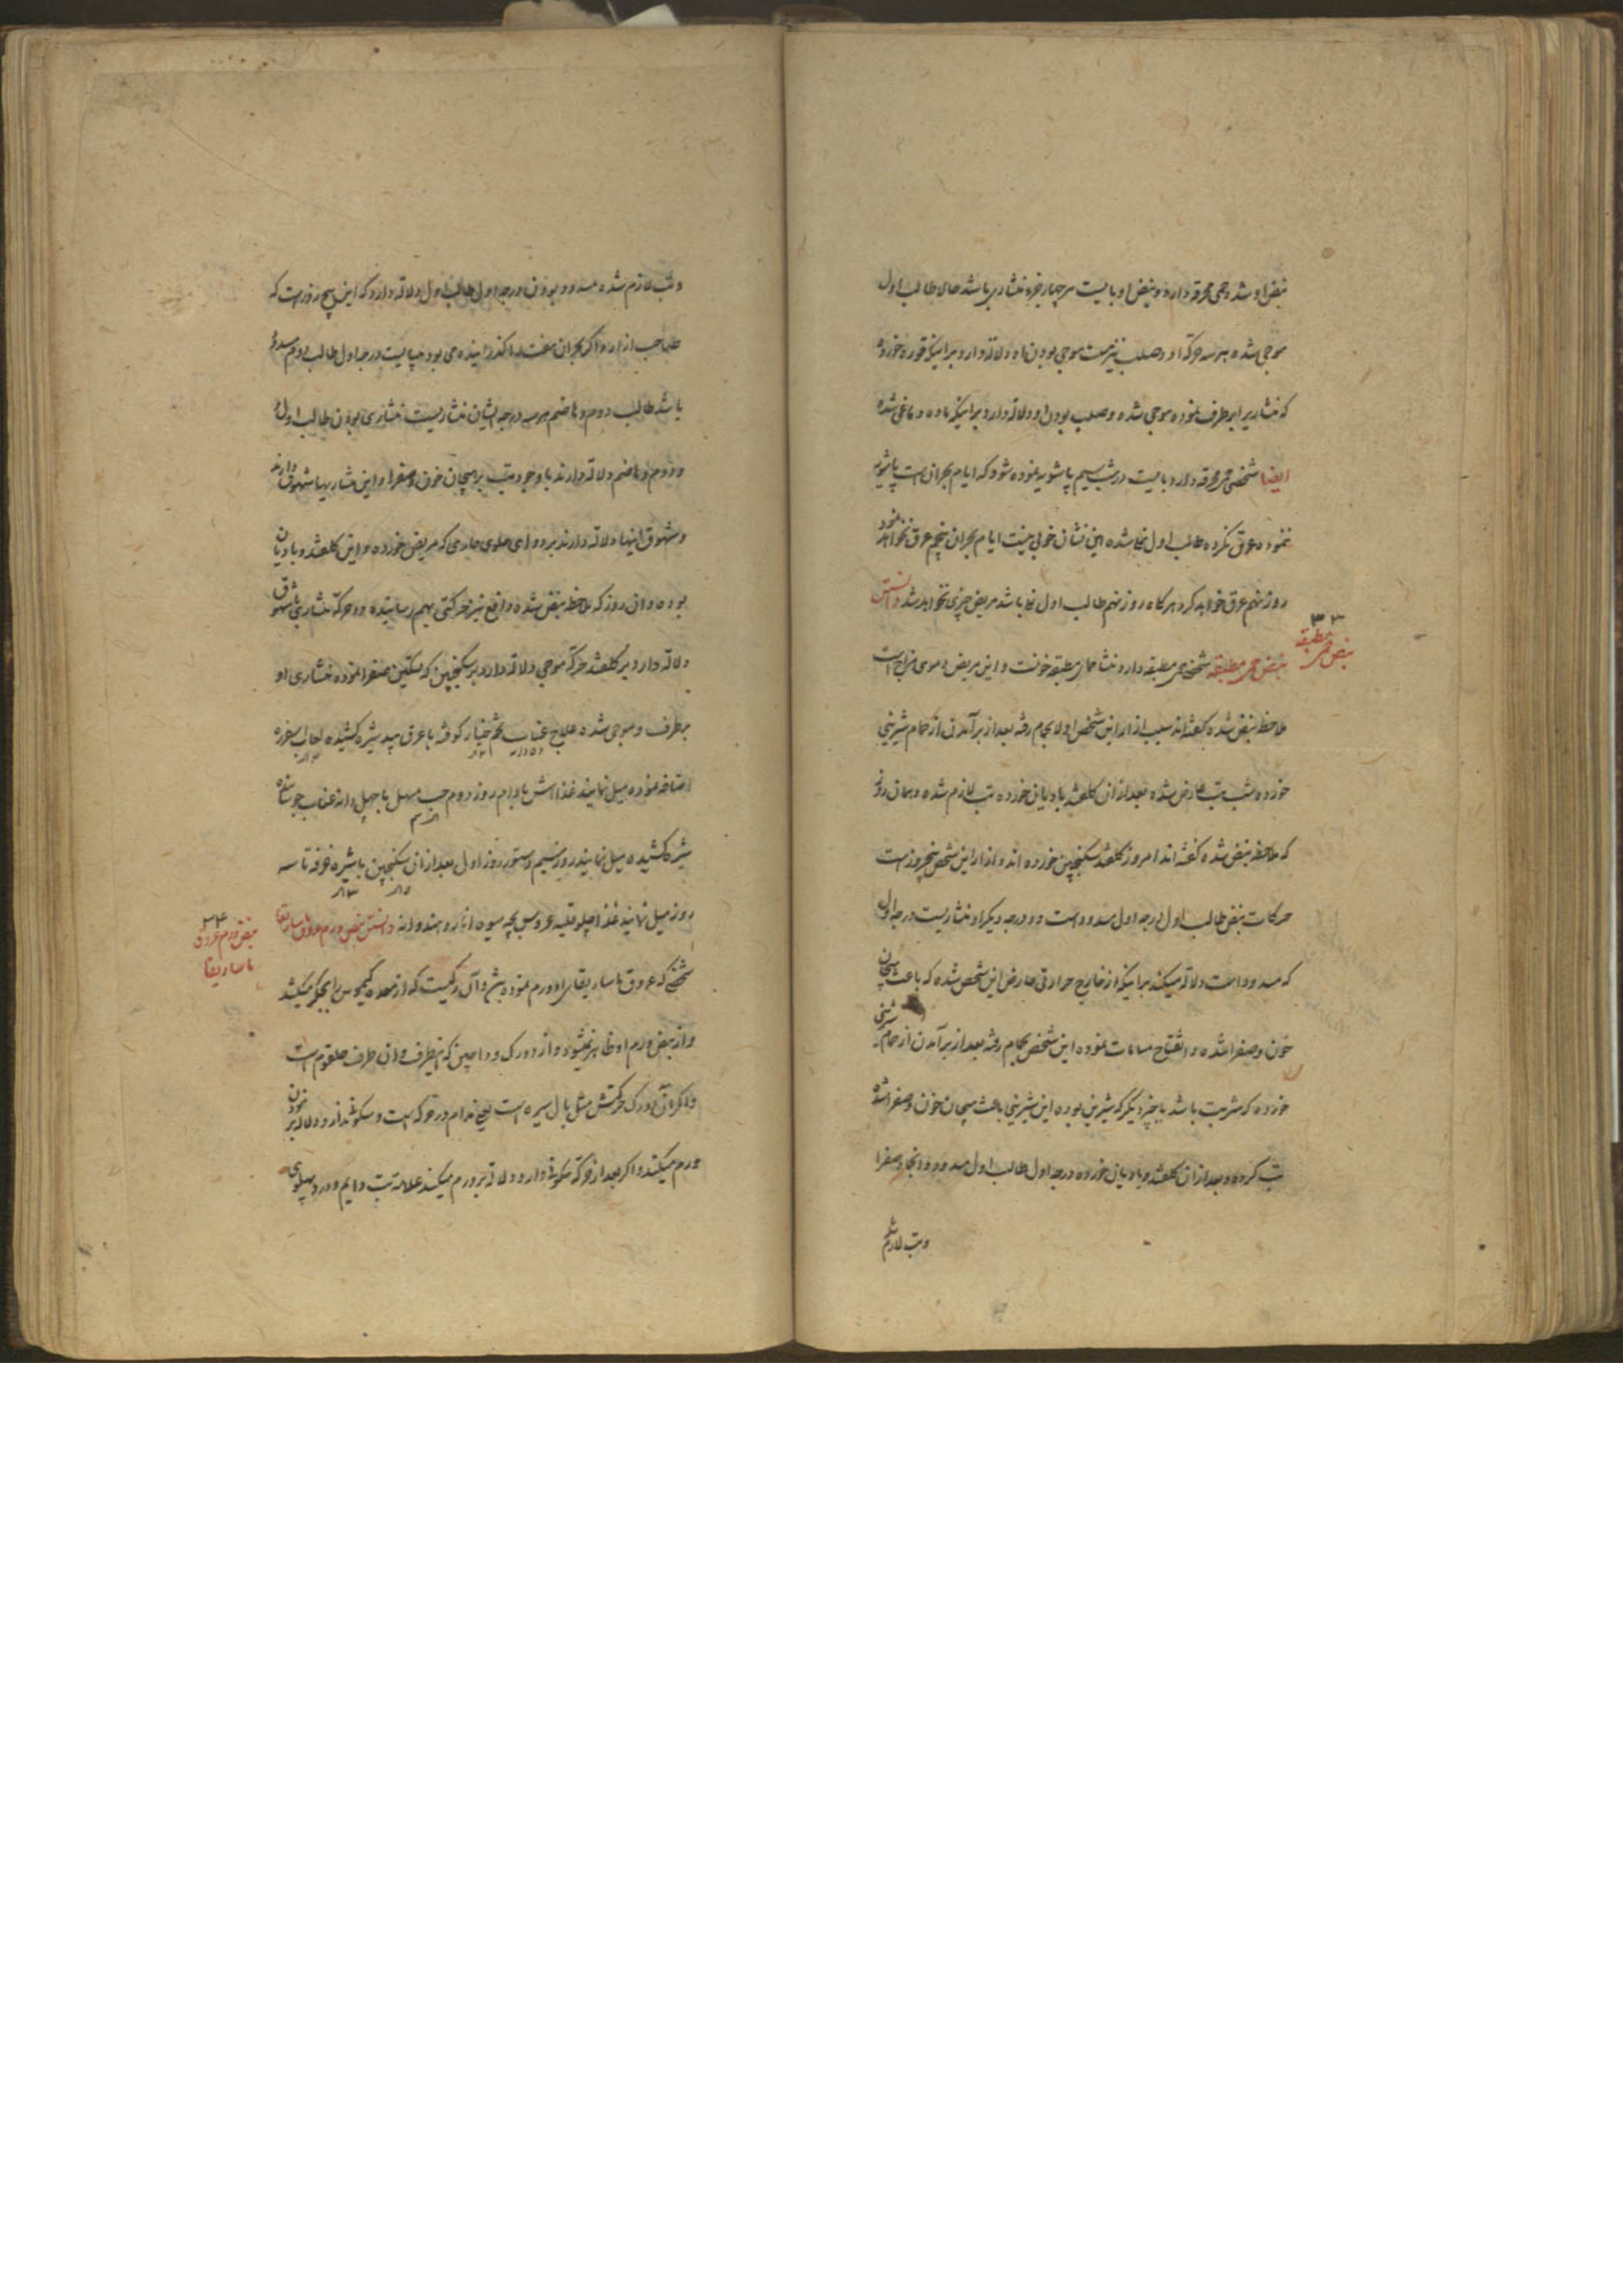 نبض او شده حمی محرقه دارد و نبض او بایست هر چهار بهره منشاری باشد حالا طالب اول
موجی شده هر سه حرکة او و صلب نیز هست موجی بودن او دلالة دارد براینکه قوره خورده
که منشاریرا برطرف نموده موجی شده و صلب بودن او دلالة دارد براینکه ماده دماغی شده
ایضا شخصی محرقه دارد بایست در شب سیم پاشویه نموده شود که ایام بحران است پاشویه
ننموده عرق نکرده طالب اول نجا شده این نشان خوبی نیست ایام بحران پنجم عرق نخواهد نمود
روز نهم عرق خواهد کرد هرکاه روز نهم طالب اول نجا باشد مریض چیزی نخواهد شد دانستن
نبض حمی مطبقه شخصی حمی مطبقه دارد منشا حمای مطبقه خونست و این مریض دموی مزاج است
۳۳
نبض حمی مطبقه
ملاحظه نبض شده گفته‌اند سبب ازار این شخص اولا بحمام رفته بعد از برآمدن از حمام شیرینی
خورده شب تب عارض شده بعد از ان کلقند بادیان خورده تب لازم شده و همان روز
که ملاحظه نبض شده گفته اند امروز گلقند سکنجبین خورده اند و ازار این شخص پنجروز است
حرکات نبض طالب اول درجه اول مسدود است و دو درجه دیگر او منشاریست درجه اول
که مسدود است دلالة میکند براینکه از خارج حرارتی عارض این شخص شده که باعث هیجان
خون و صفرا شده و انفتاح مسامات نموده این شخص بحمام رفته بعد از برآمدن از حمام شیرینی
خورده که شربت باشد یا چیز دیگر که شیرین بوده این شیرینی باعث هیجان خون و صفرا شده
تب کرده و بعد از ان کلقند و بادیان خورده درجه اول طالب اول مسدود و انجا صفرا
و تب لازم شد
و تب لازم شده مسدود بودن درجه اول طالب اول دلالة دارد که این پنج روز است که
صاحب ازار است اگر بحران هفت را گذرانیده می بود میبایست درجه اول طالب دوم مسدود
باشد طالب دوم و هاضم هر سه درجه ایشان منشاریست منشاری بودن طالب اول و
و دوم و هاضم دلالة دارند با وجود تب بر هیجان خون و صفرا و این منشاریها شهوق دارند
و شهوق اینها دلالة دارند بر دوای حلوی حادی که مریض خورده و این کلقند و بادیان
بوده و ان روز که ملاحظه نبض شده دافع نیز حرکتی بهم رسانیده دو حرکة منشاری با شهوق
دلالة دارد بر کلقند حرکة موجی دلالة دارد بر سکنجبین که تسکین صفرا نموده منشاری او
برطرف و موجی شده علاج عناب تخم خیار کوفته با عرق بید شیره کشیده لعاب اسفرزه
اضافه نموده میل نمایند غذا اش بادام روز دوم حب مسهل با چهل دانه عناب جوشانده
شیره کشیده میل نمایند روز سیم دستور روز اول بعد از ان سکنجبین با شیره خرفه تا سه
روز میل نمایند غذا چلو قلیه خروس بچه میوه انار و هندوانه دانستن نبض ورم عروق ماساریقا
۳۴
نبض ورم عروق
ماساریقا
شخصی که عروق ماساریقای او ورم نموده باشد و آن رکیست که از معده کیموس را بجکر میکشد
و از نبض ورم او ظاهر نمیشود و از دو رک وداجین که اینطرف و ان طرف حلقوم است
و اگر آن دو رک حرکتش مثل بال سیره است یعنی مدام در حرکه است و سکونه ندارد دلالة بر نبودن
ورم میکند و اگر بعد از حرکة سکونه دارد دلالة بر ورم میکند علامة تب دایم و درد پهلوی